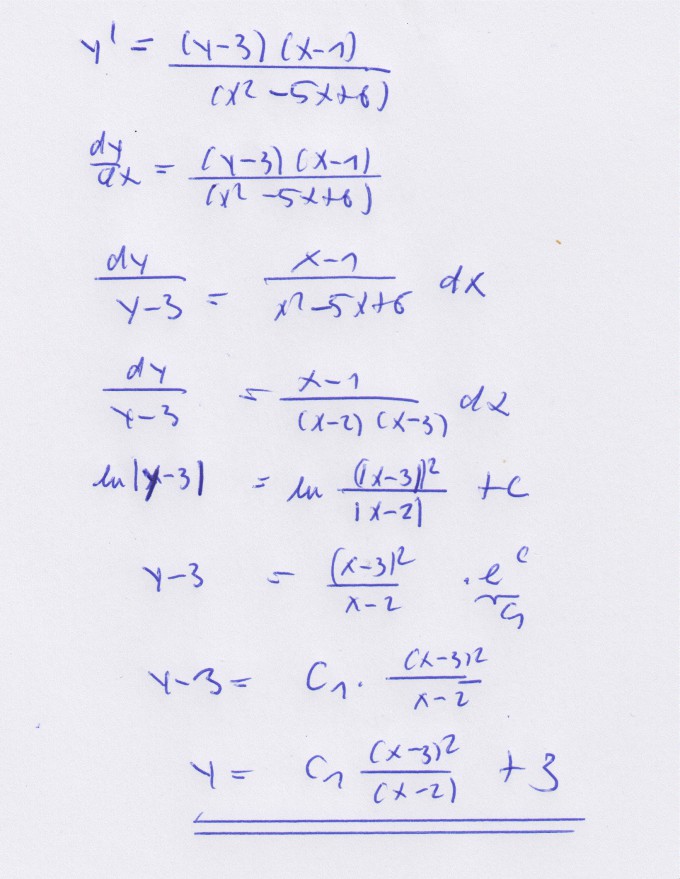 y' = (y-3)(x-1) / (x² -5x+6)
dy/dx = (y-3)(x-1) / (x² -5x+6)
dy / y-3 = x-1 / x²-5x+6 dx
dy / y-3 = x-1 / (x-2)(x-3) dx
ln|y-3| = ln (|x-3|)² / |x-2| +C
y-3 = (x-3)² / x-2 · e^c
C₁
y-3 = C₁ · (x-3)² / x-2
y = C₁ (x-3)² / (x-2) + 3